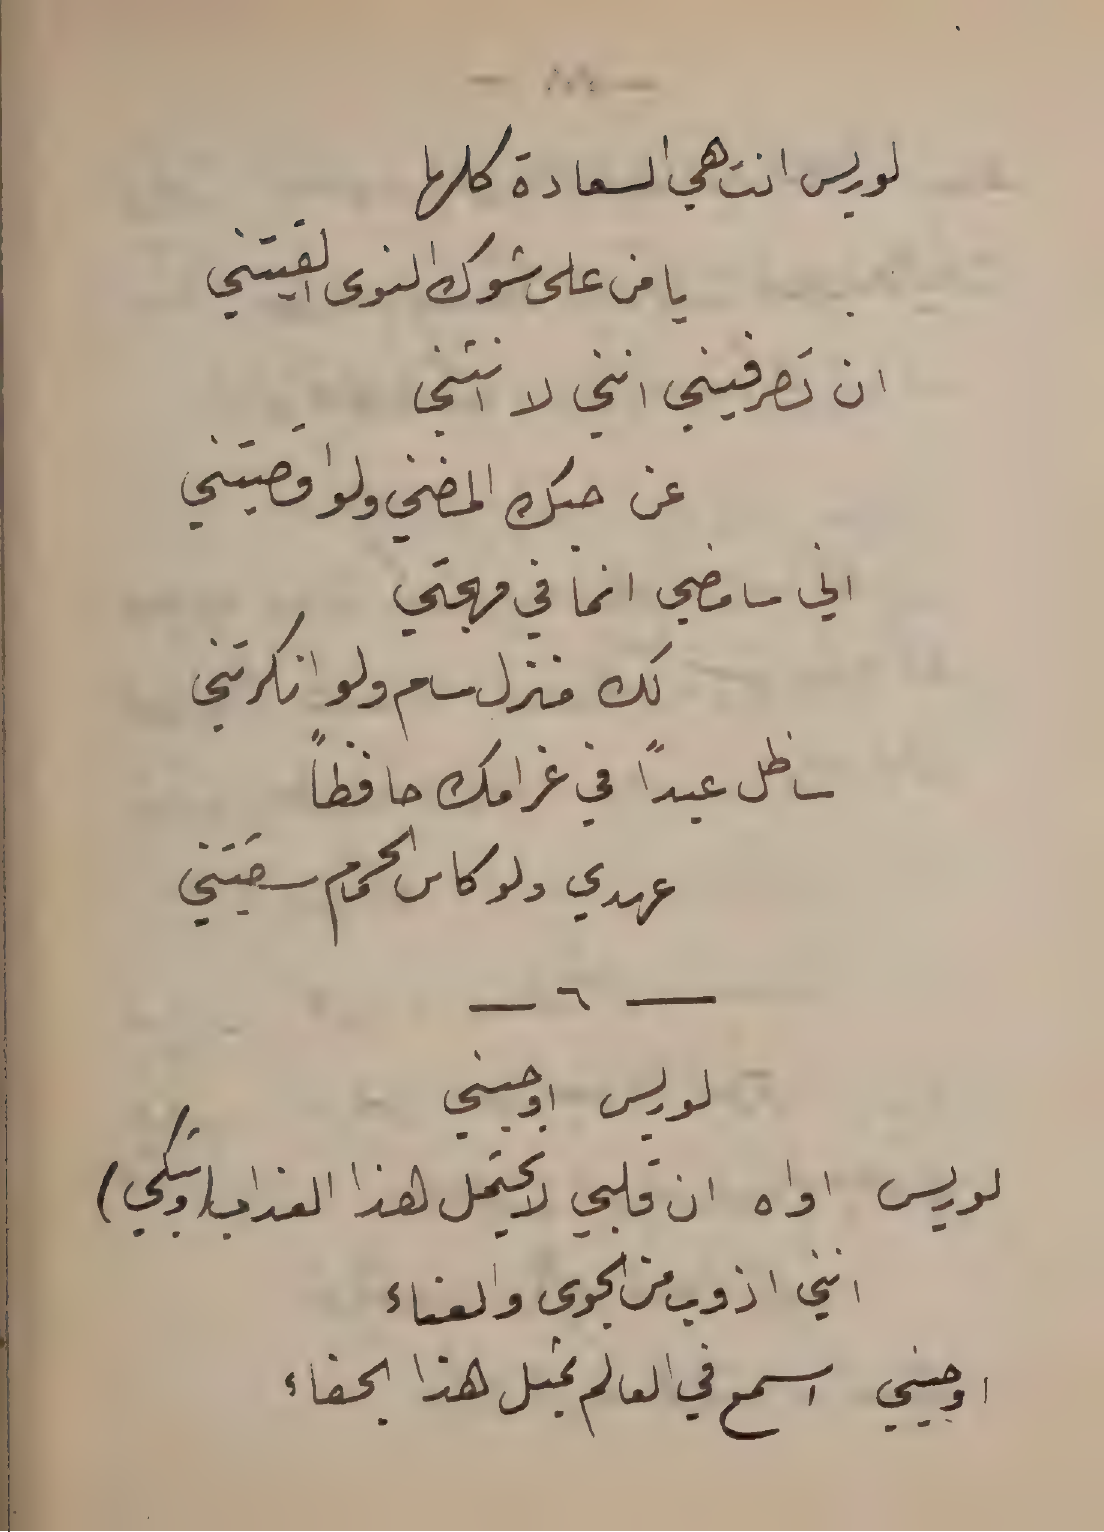 لوريس انت هي السعادة كلها
يا من على شوك النوى القيتني
ان تصرفيني انني لا انثني
عن حبك المضني ولو اقصيتني
اني سامضي انما في مهجتي
لك منزل سام ولو انكرتني
ساظل عبداً في غرامك حافظاً
عهدي ولو كاس الحمام سقيتني
— ٦ —
لوريس اوجيني
لوريس اواه ان قلبي لا يحتمل هذا العذاب (ويبكي)
انني اذوب من الجوى والعناء
اوجيني اسمع في العالم بمثل هذا الجفاء